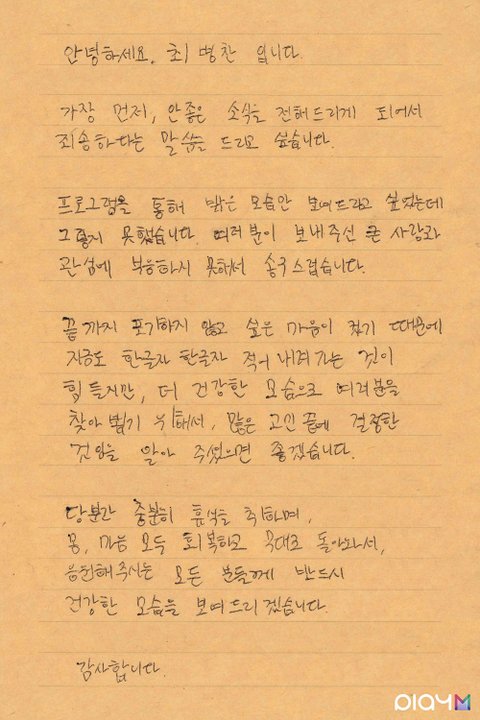 안녕하세요. 최병찬 입니다.
가장 먼저, 안좋은 소식을 전해드리게 되어서
죄송하다는 말씀을 드리고 싶습니다.
프로그램을 통해 밝은 모습만 보여드리고 싶었는데
그렇지 못했습니다. 여러분이 보내주신 큰 사랑과
관심에 부응하지 못해서 송구스럽습니다.
끝까지 포기하지 않고 싶은 마음이 컸기 때문에
지금도 한글자 한글자 적어 내려가는 것이
힘들지만, 더 건강한 모습으로 여러분을
찾아 뵙기 위해서, 많은 고민 끝에 결정한
것임을 알아 주셨으면 좋겠습니다.
당분간 충분히 휴식을 취하며,
몸, 마음 모두 회복하고 그대로 돌아와서,
응원해주시는 모든 분들께 반드시
건강한 모습을 보여드리겠습니다.
감사합니다.
PLAYM